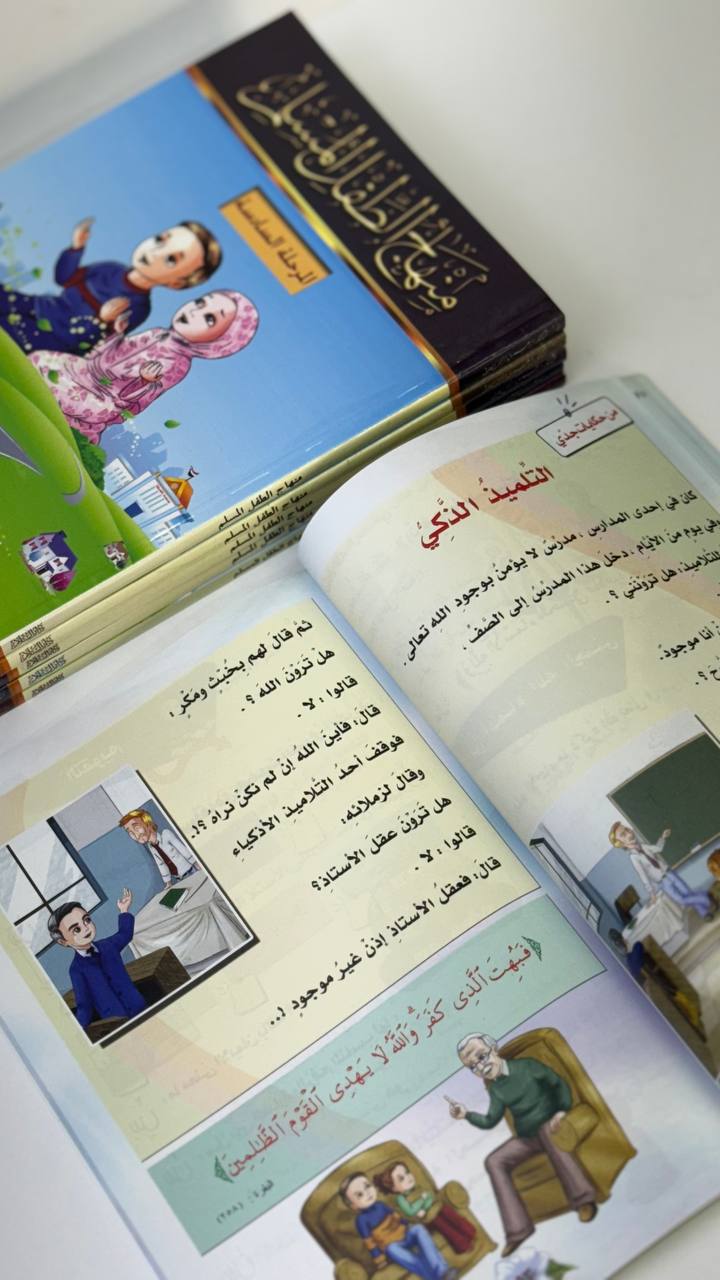 منهاج الطفل المسلم
المرحلة السادسة
منهاج الطفل المسلم
منهاج الطفل المسلم
منهاج الطفل المسلم
منهاج الطفل المسلم
من حكايات جدّي
التِّلميذُ الذَّكيُّ
كانَ في إحدى المدارسِ ، مدرّسٌ لا يؤمنُ بوجودِ اللهِ تعالى.
في يومٍ منَ الأيّامِ ، دخلَ هذا المدرّسُ إلى الصَّفِّ ،
للتلاميذِ: هل ترَوْنَني ؟.
أنا موجودٌ.
ثمَّ قالَ لهم بِخُبْثٍ ومَكْرٍ :
هل ترَوْنَ اللهَ ؟ .
قالوا : لا .
قالَ: فأينَ اللهُ إنْ لم نكُنْ نراهُ ؟!.
فوقفَ أحدُ التّلاميذِ الأذكياءِ
وقالَ لزملائِه:
هل ترَوْنَ عقلَ الأستاذِ؟
قالوا : لا .
قالَ: فعقلُ الأستاذِ إذنْ غيرُ موجودٍ !..
﴿فَبُهِتَ ٱلَّذِى كَفَرَ ۗ وَٱللَّهُ لَا يَهْدِى ٱلْقَوْمَ ٱلظَّٰلِمِينَ﴾
البقرة : (٢٥٨)